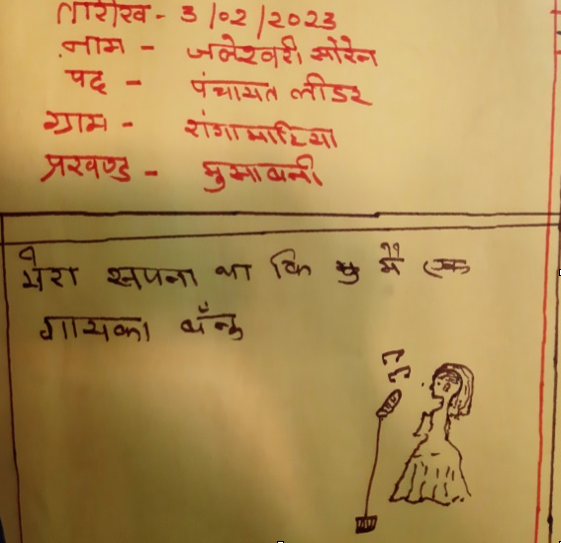 तारीख - 3/02/2023
नाम - जलेश्वरी सोरेन
पद - पंचायत लीडर
ग्राम - रांगामाटिया
प्रखण्ड - मुसाबनी
मेरा सपना था कि मैं एक
गायका बँनु